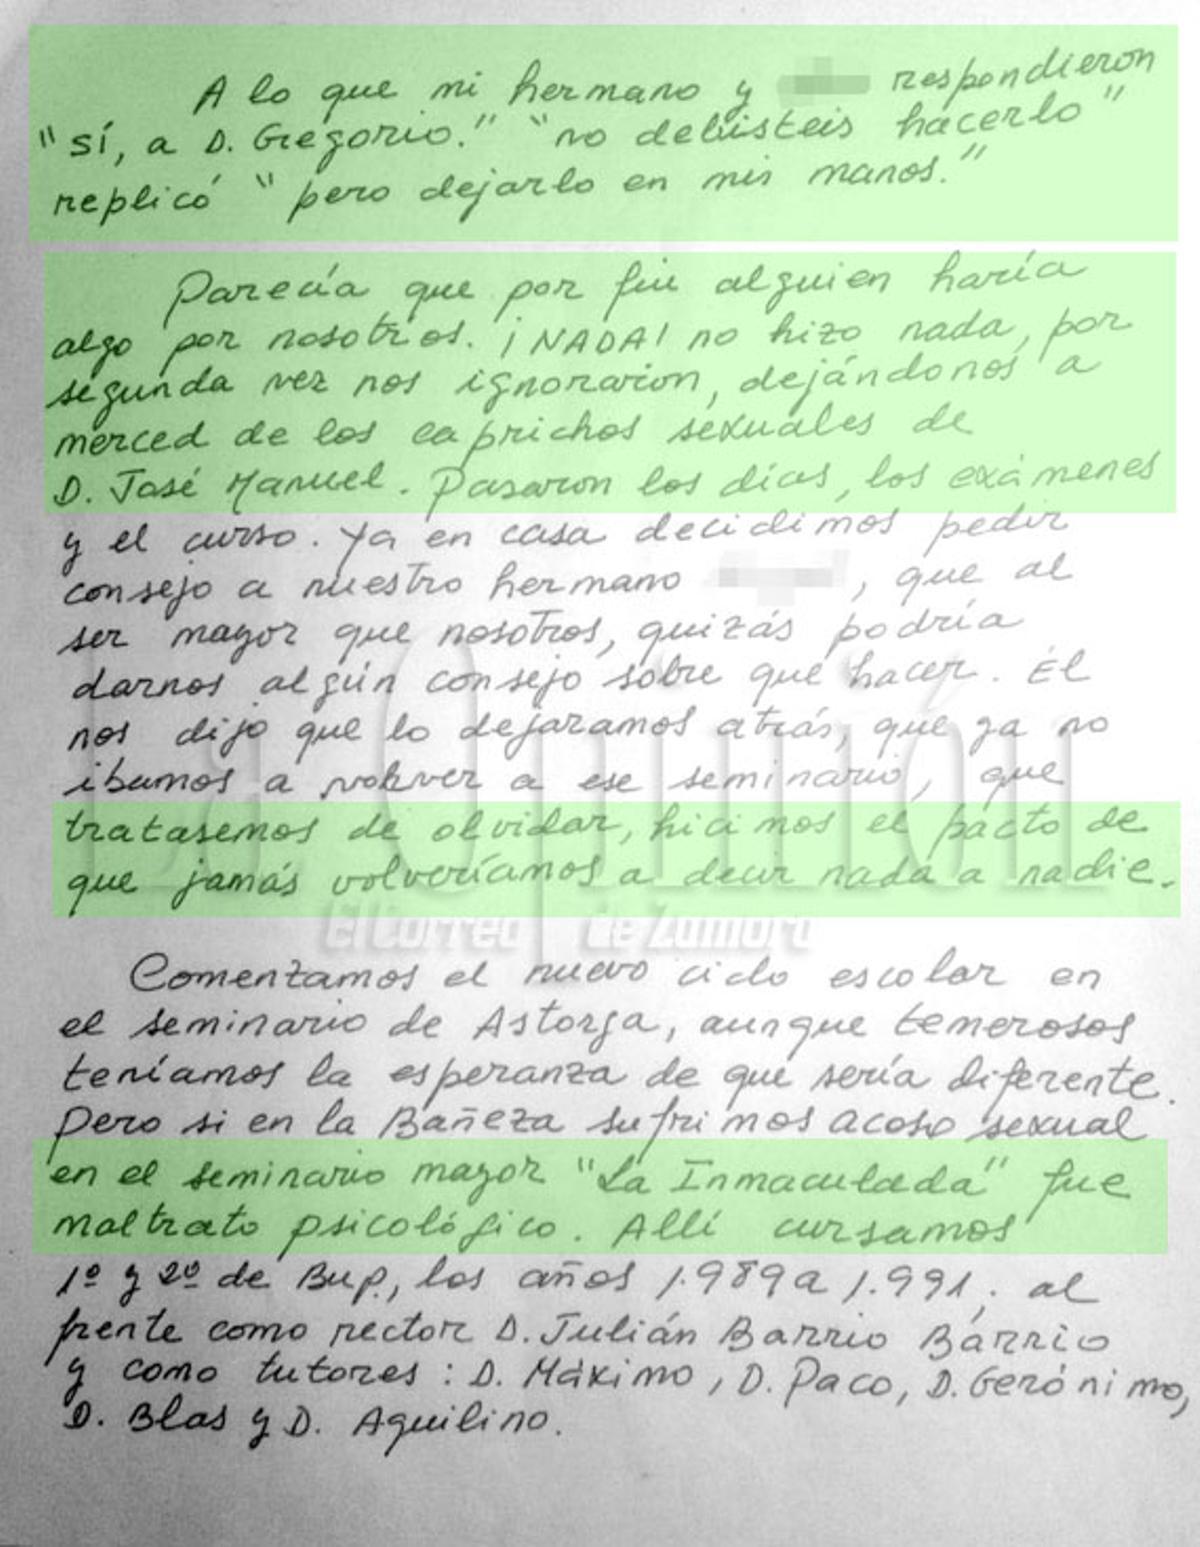 A lo que mi hermano y respondieron
"sí, a D. Gregorio." "no debisteis hacerlo"
replicó "pero dejarlo en mis manos."
Parecía que por fin alguien haría
algo por nosotros. ¡NADA! no hizo nada, por
segunda vez nos ignoraron, dejándonos a
merced de los caprichos sexuales de
D. José Manuel. Pasaron los días, los exámenes
y el curso. Ya en casa decidimos pedir
consejo a nuestro hermano , que al
ser mayor que nosotros, quizás podría
darnos algún consejo sobre que hacer. Él
nos dijo que lo dejaramos atrás, que ya no
ibamos a volver a ese seminario, que
tratasemos de olvidar, hicimos el pacto de
que jamás volveríamos a decir nada a nadie.
La Opinión
El Correo de Zamora
Comenzamos el nuevo ciclo escolar en
el seminario de Astorga, aunque temerosos
teníamos la esperanza de que sería diferente.
Pero si en la Bañeza sufrimos acoso sexual
en el seminario mayor "La Inmaculada" fue
maltrato psicológico. Allí cursamos
1º y 2º de Bup, los años 1.989 a 1.991, al
frente como rector D. Julián Barrio Barrio
y como tutores: D. Máximo, D. Paco, D. Gerónimo,
D. Blas y D. Aquilino.